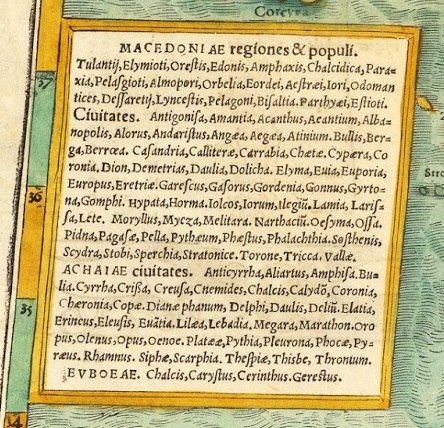 Corcyra
MACEDONIAE regiones & populi.
Tulantij, Elymioti, Orestis, Edonis, Amphaxis, Chalcidica, Para=
xia, Pelasgioti, Almopori, Orbelia, Eordei, Aestræi, Iori, Odoman
tices, Dessaretij, Lyncestis, Pelagoni, Bisaltia. Parthyæi, Estioti.
Ciuitates. Antigonisa, Amantia, Acanthus, Acantium, Alba=
nopolis, Alorus, Andaristus. Angæa, Aegæa, Atinium. Bullis, Ber=
ga, Berrœa. Casandria, Calliteræ, Carrabia, Chætæ. Cypæra, Co
ronia. Dion, Demetrias, Daulia, Dolicha. Elyma, Euia, Euporia,
Europus, Eretriæ. Garescus, Gasorus, Gordenia, Gonnus, Gyrto=
na, Gomphi. Hypata, Horma. Iolcos, Iorum, Ilegiũ. Lamia, Laris=
sa, Lete. Moryllus, Mycza, Melitara. Narthaciũ. Oesyma, Ossa.
Pidna, Pagasæ, Pella, Pythæum, Phæstus, Phalachthia. Sosthenis,
Scydra, Stobi, Sperchia, Stratonice. Torone, Tricca. Vallæ.
ACHAIAE ciuitates. Anticyrrha, Aliartus, Amphisa. Bu=
lia. Cyrrha, Crissa, Creusa, Cnemides, Chalcis, Calydõ, Coronia,
Chæronia, Copæ. Dianæ phanum, Delphi, Daulis, Deliũ. Elatia,
Erineus, Eleusis, Euãtia. Lilæa, Lebadia. Megara, Marathon. Oro
pus, Olenus, Opus, Oenoe. Platææ, Pythia, Pleurona, Phocæ, Py=
ræus. Rhamnus. Siphæ, Scarphia. Thespiæ, Thisbe, Thronium.
EVBOEAE. Chalcis, Carystus, Cerinthus. Gerestus.
37
36
35
34